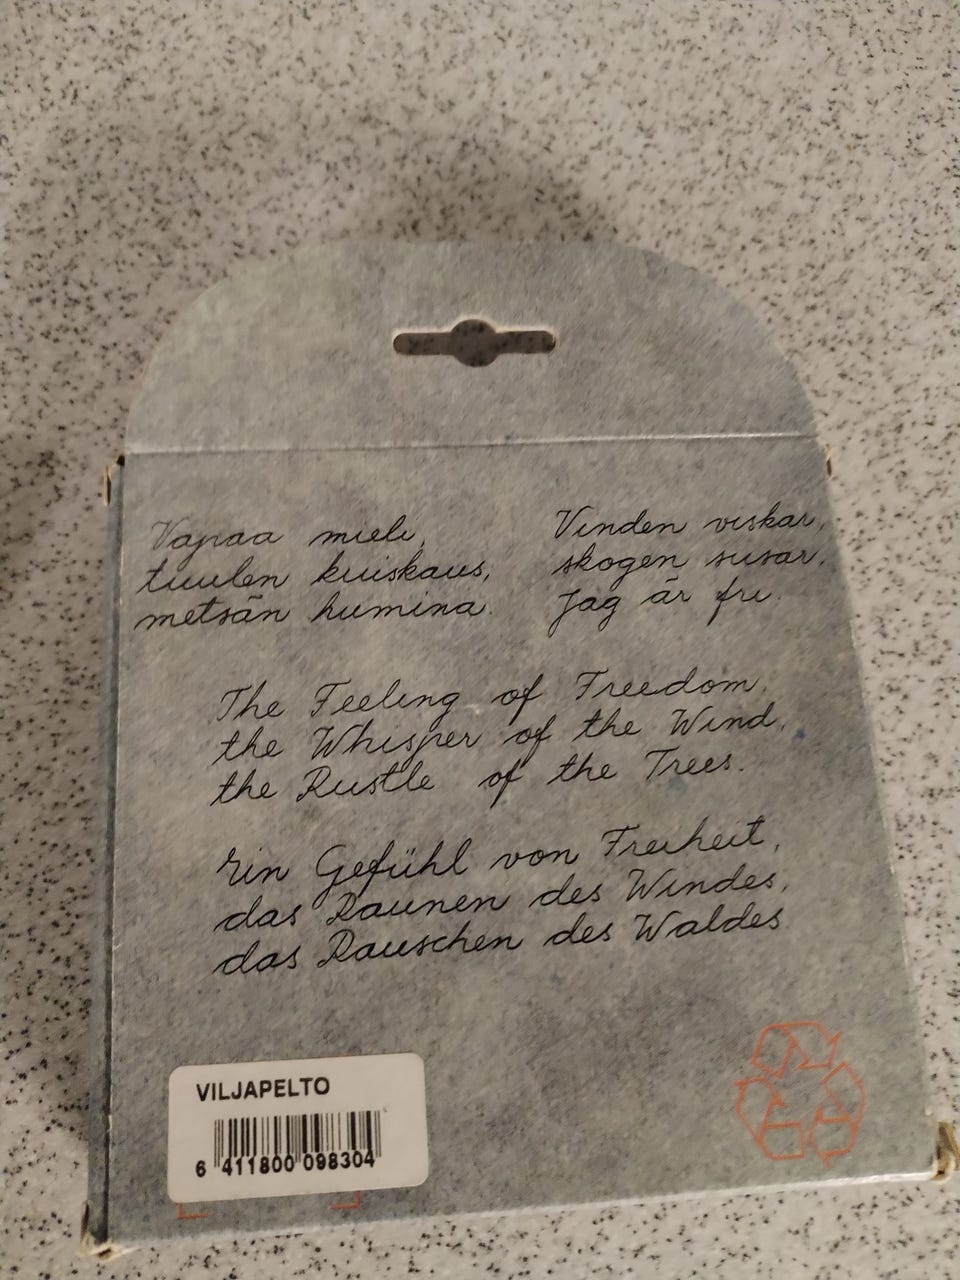 Vapaa mieli,
tuulen kuiskaus,
metsän humina.
Vinden viskar,
skogen susar,
Jag är fri.
The Feeling of Freedom,
the Whisper of the Wind,
the Rustle of the Trees.
Ein Gefühl von Freiheit,
das Raunen des Windes,
das Rauschen des Waldes.
VILJAPELTO
6 411800 098304